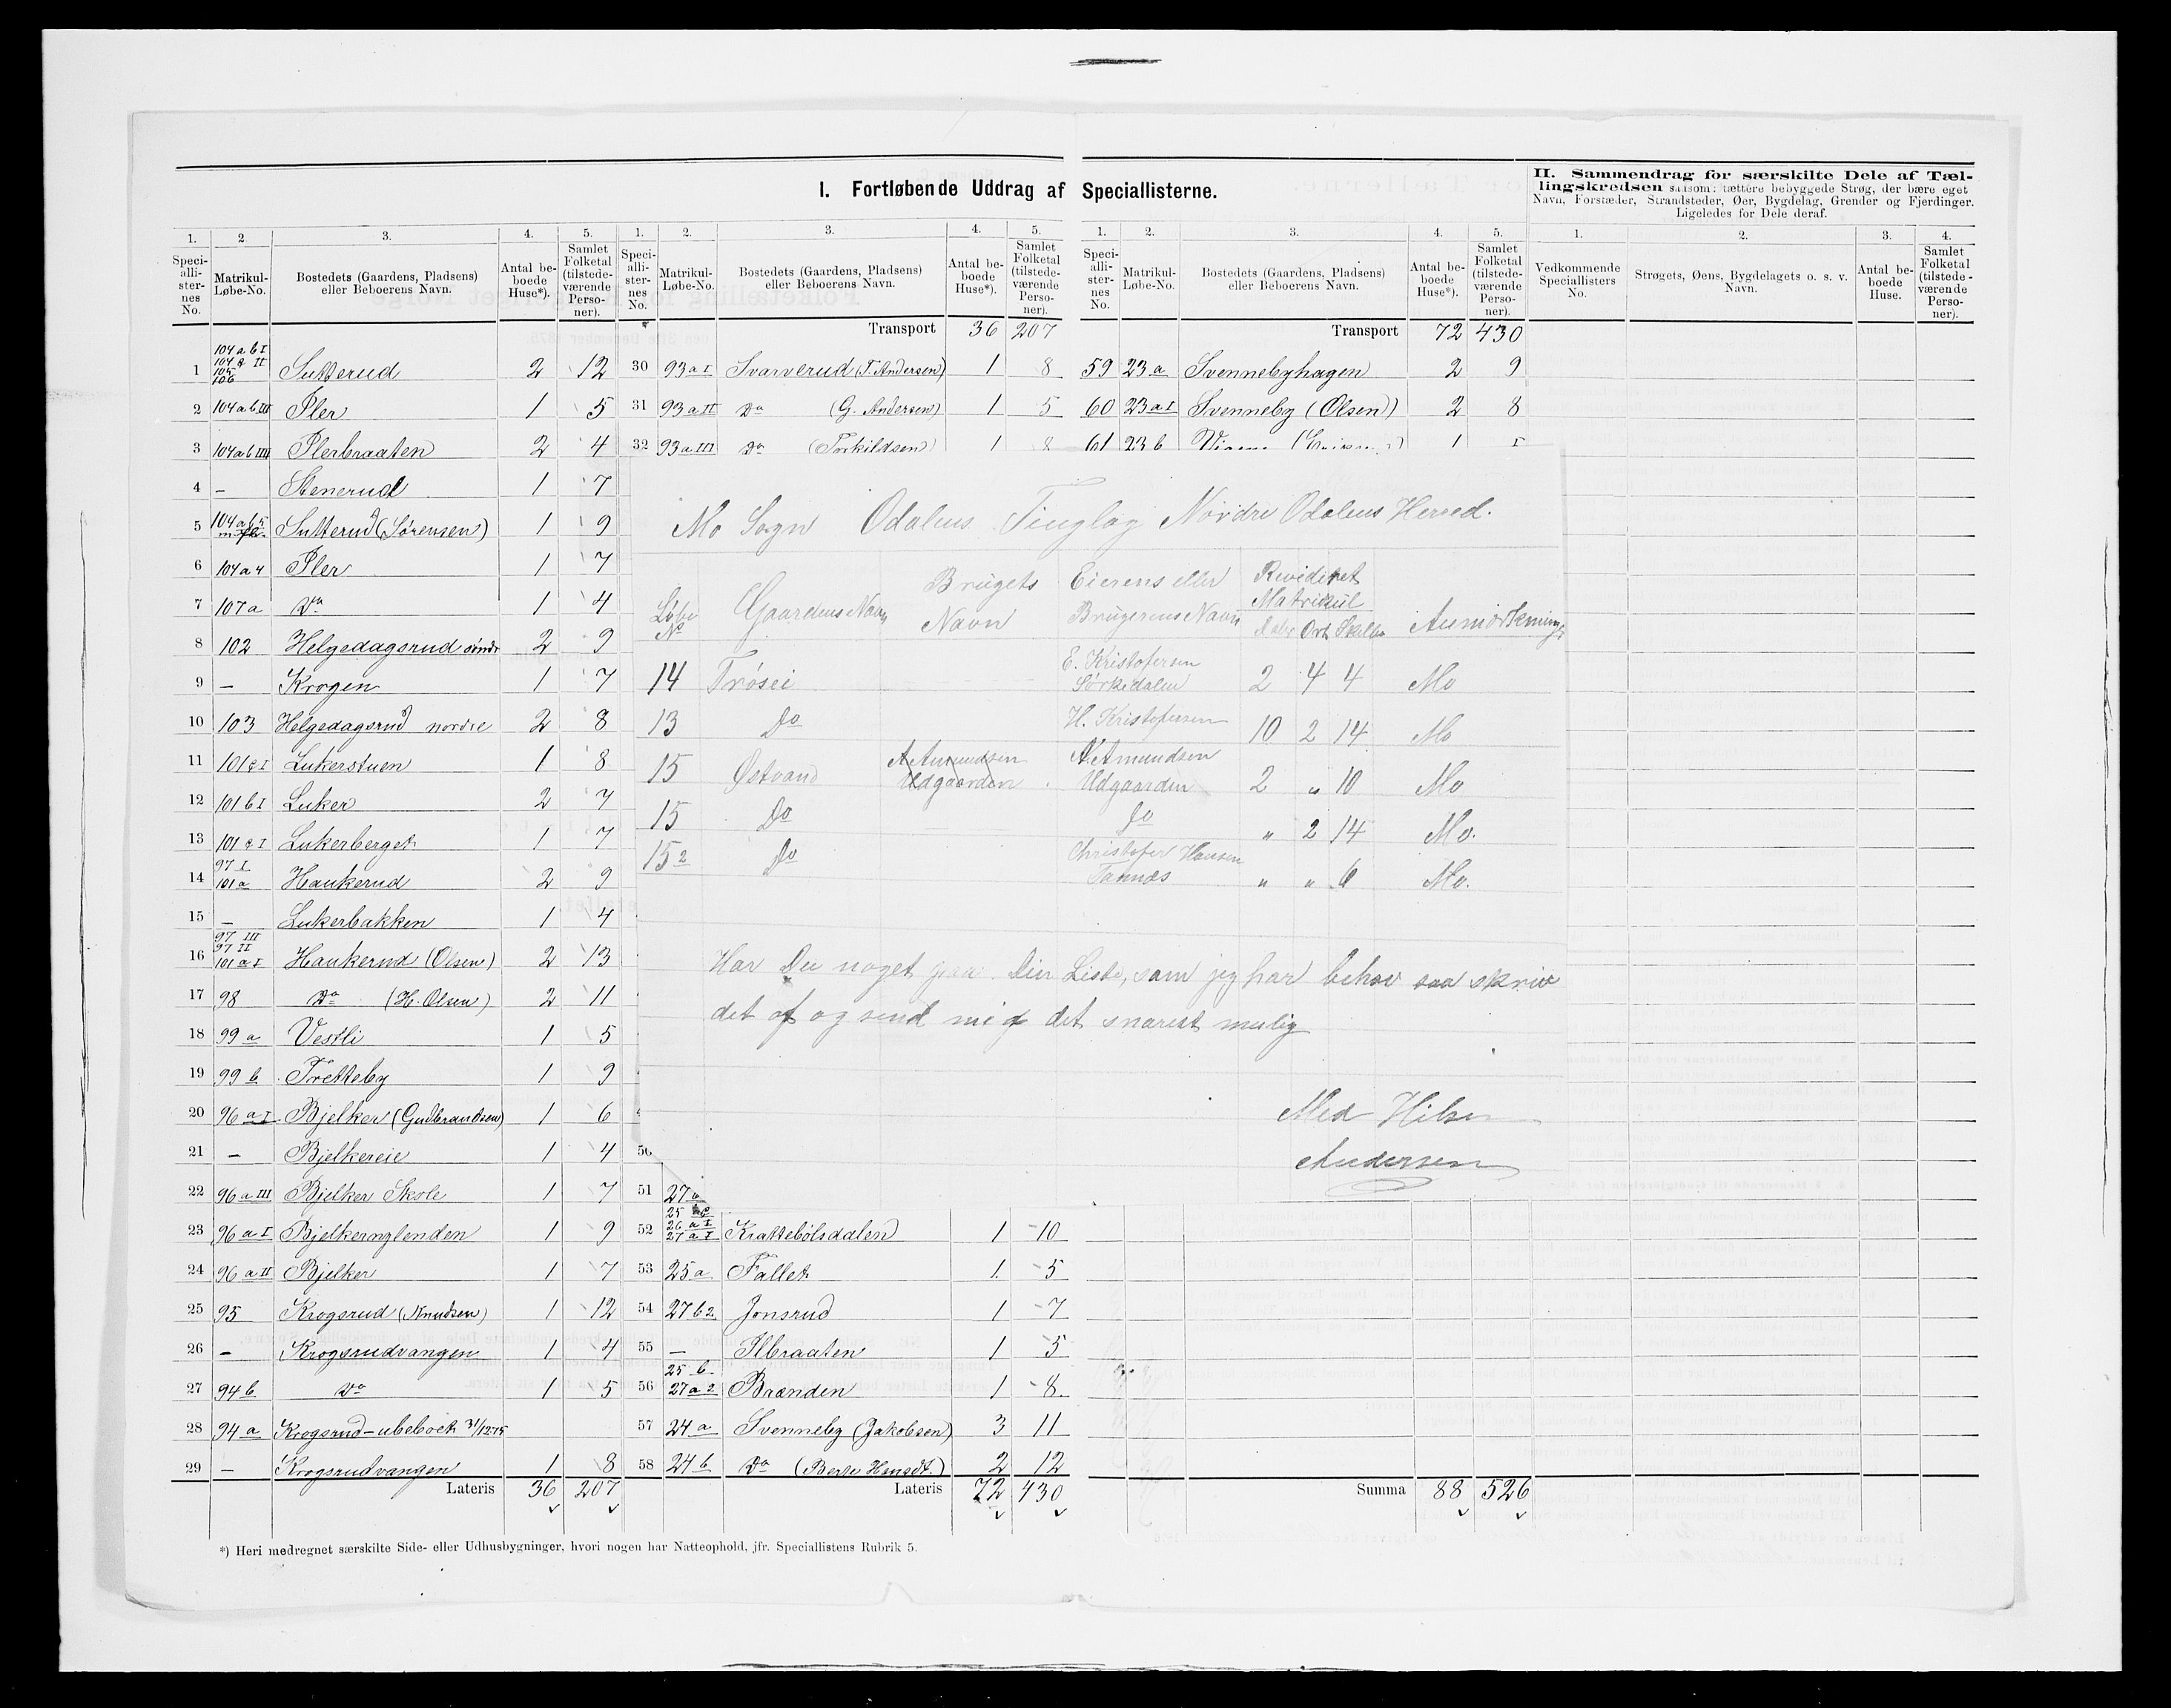 I. Fortløbende Uddrag af Speciallisterne.
II. Sammendrag for særskilte Dele af Tæl-
lingskredsen saasom: tættere bebyggede Strøg, der bære eget
Navn, Forstæder, Strandsteder, Øer, Bygdelag, Grender og Fjerdinger.
Ligeledes for Dele deraf.
1. 2 3. 4. 5.
Speci-alli-ster-nes No. Matrikul-Løbe-No. Bostedets (Gaardens, Pladsens) eller Beboerens Navn. Antal be-boede Huse*). Samlet Folketal (tilstede-værende Perso-ner).
1 104 a b I 104 II 105 106 Sutterud 2 12
2 104 a b III Pler 1 5
3 104 a b IIII Plerbraaten 2 4
4 - Stenerud 1 7
5 104 a b 5 Sutterud (Sørensen) 1 9
6 104 a 4 Pler 1 7
7 107 a Do 1 4
8 102 Helgedagsrud søndr 2 9
9 - Krogen 1 7
10 103 Helgedagsrud nordre 2 8
11 101 c I Lukerstuen 1 8
12 101 b I Luker 2 7
13 101 c I Lukerberget 1 7
14 97 I 101 a Haukerud 2 9
15 - Lukerbakken 1 4
16 97 III 97 II 101 a I Haukerud (Olsen) 2 13
17 98 Do (H. Olsen) 2 11
18 99 a Vestli 1 5
19 99 b Tretteby 1 9
20 96 a I Bjelker (Gudbrandsen) 1 6
21 - Bjelkereie 1 4
22 96 a III Bjelker Skole 1 7
23 96 a I Bjelkernylenden 1 9
24 96 a II Bjelker 1 7
25 95 Krogsrud (Knudsen) 1 12
26 - Krogsrudvangen 1 4
27 94 b Do 1 5
28 94 a Krogsrud - ubeboet 31/12 75
29 - Krogsrudvangen 1 8
Lateris 36 207
1. 2. 3. 4. 5.
Speci-alli-ster-nes No. Matrikul-Løbe-No. Bostedets (Gaardens, Pladsens) eller Beboerens Navn. Antal be-boede Huse*). Samlet Folketal (tilstede-værende Perso-ner).
Transport 36 207
30 93 a I Svarverud (T. Andersen) 1 8
31 93 a II Do (G. Andersen) 1 5
32 93 a III Do (Torkildsen) 1 8
50
51 27
52 25 26 a I 27 a I Krattebölsdalen 1 10
53 25 a Fallet 1 5
54 27 b 2 Jonsrud 1 7
55 - Ilbraaten 1 5
56 25 b 27 a 2 Brænden 1 8
57 24 a Svenneby (Jakobsen) 3 11
58 24 b Do (Berte Hansdt.) 2 12
Lateris 72 430
1. 2. 3. 4. 5.
Speci-alli-ster-nes No. Matrikul-Løbe-No. Bostedets (Gaardens, Pladsens) eller Beboerens Navn. Antal be-boede Huse*). Samlet Folketal (tilstede-værende Perso-ner).
Transport 72 430
59 23 a Svennebyhagen 2 9
60 23 a I Svenneby (Olsen) 2 8
61 23 b 1
Summa 88 526
1. 2. 3. 4.
Vedkommende Speciallisters No. Strøgets, Øens, Bygdelagets o. s. v. Navn. Antal be-boede Huse. Samlet Folketal (tilstede-værende Perso-ner).
Mo Sogn Odalens Tinglag Nordre Odalens Herred.
Løbe No Gaardens Navn Brugets Navn Eierens eller Brugerens Navn Revideret Matrikul Daler Ort Skilling Anmærkning
14 Trøsei E. Kristofersen Sörkedalen 2 4 4 Mo
13 Do H. Kristofersen 10 2 14 Mo
15 Østvand A Amundsen Udgaarden A Amundsen Udgaarden 2 " 10 Mo
15 Do Do " 2 14 Mo.
15 2 Do Christofer Hansen " " 6 Mo.
Har Du noget paa Din Liste, som jeg har behov saa skriv
det af og send mig det snarest mulig
Med Hilsen
Andersen
*) Heri medregnet særskilte Side- eller Udhusbygninger, hvori nogen har Natteophold, jfr. Speciallistens Rubrik 5.